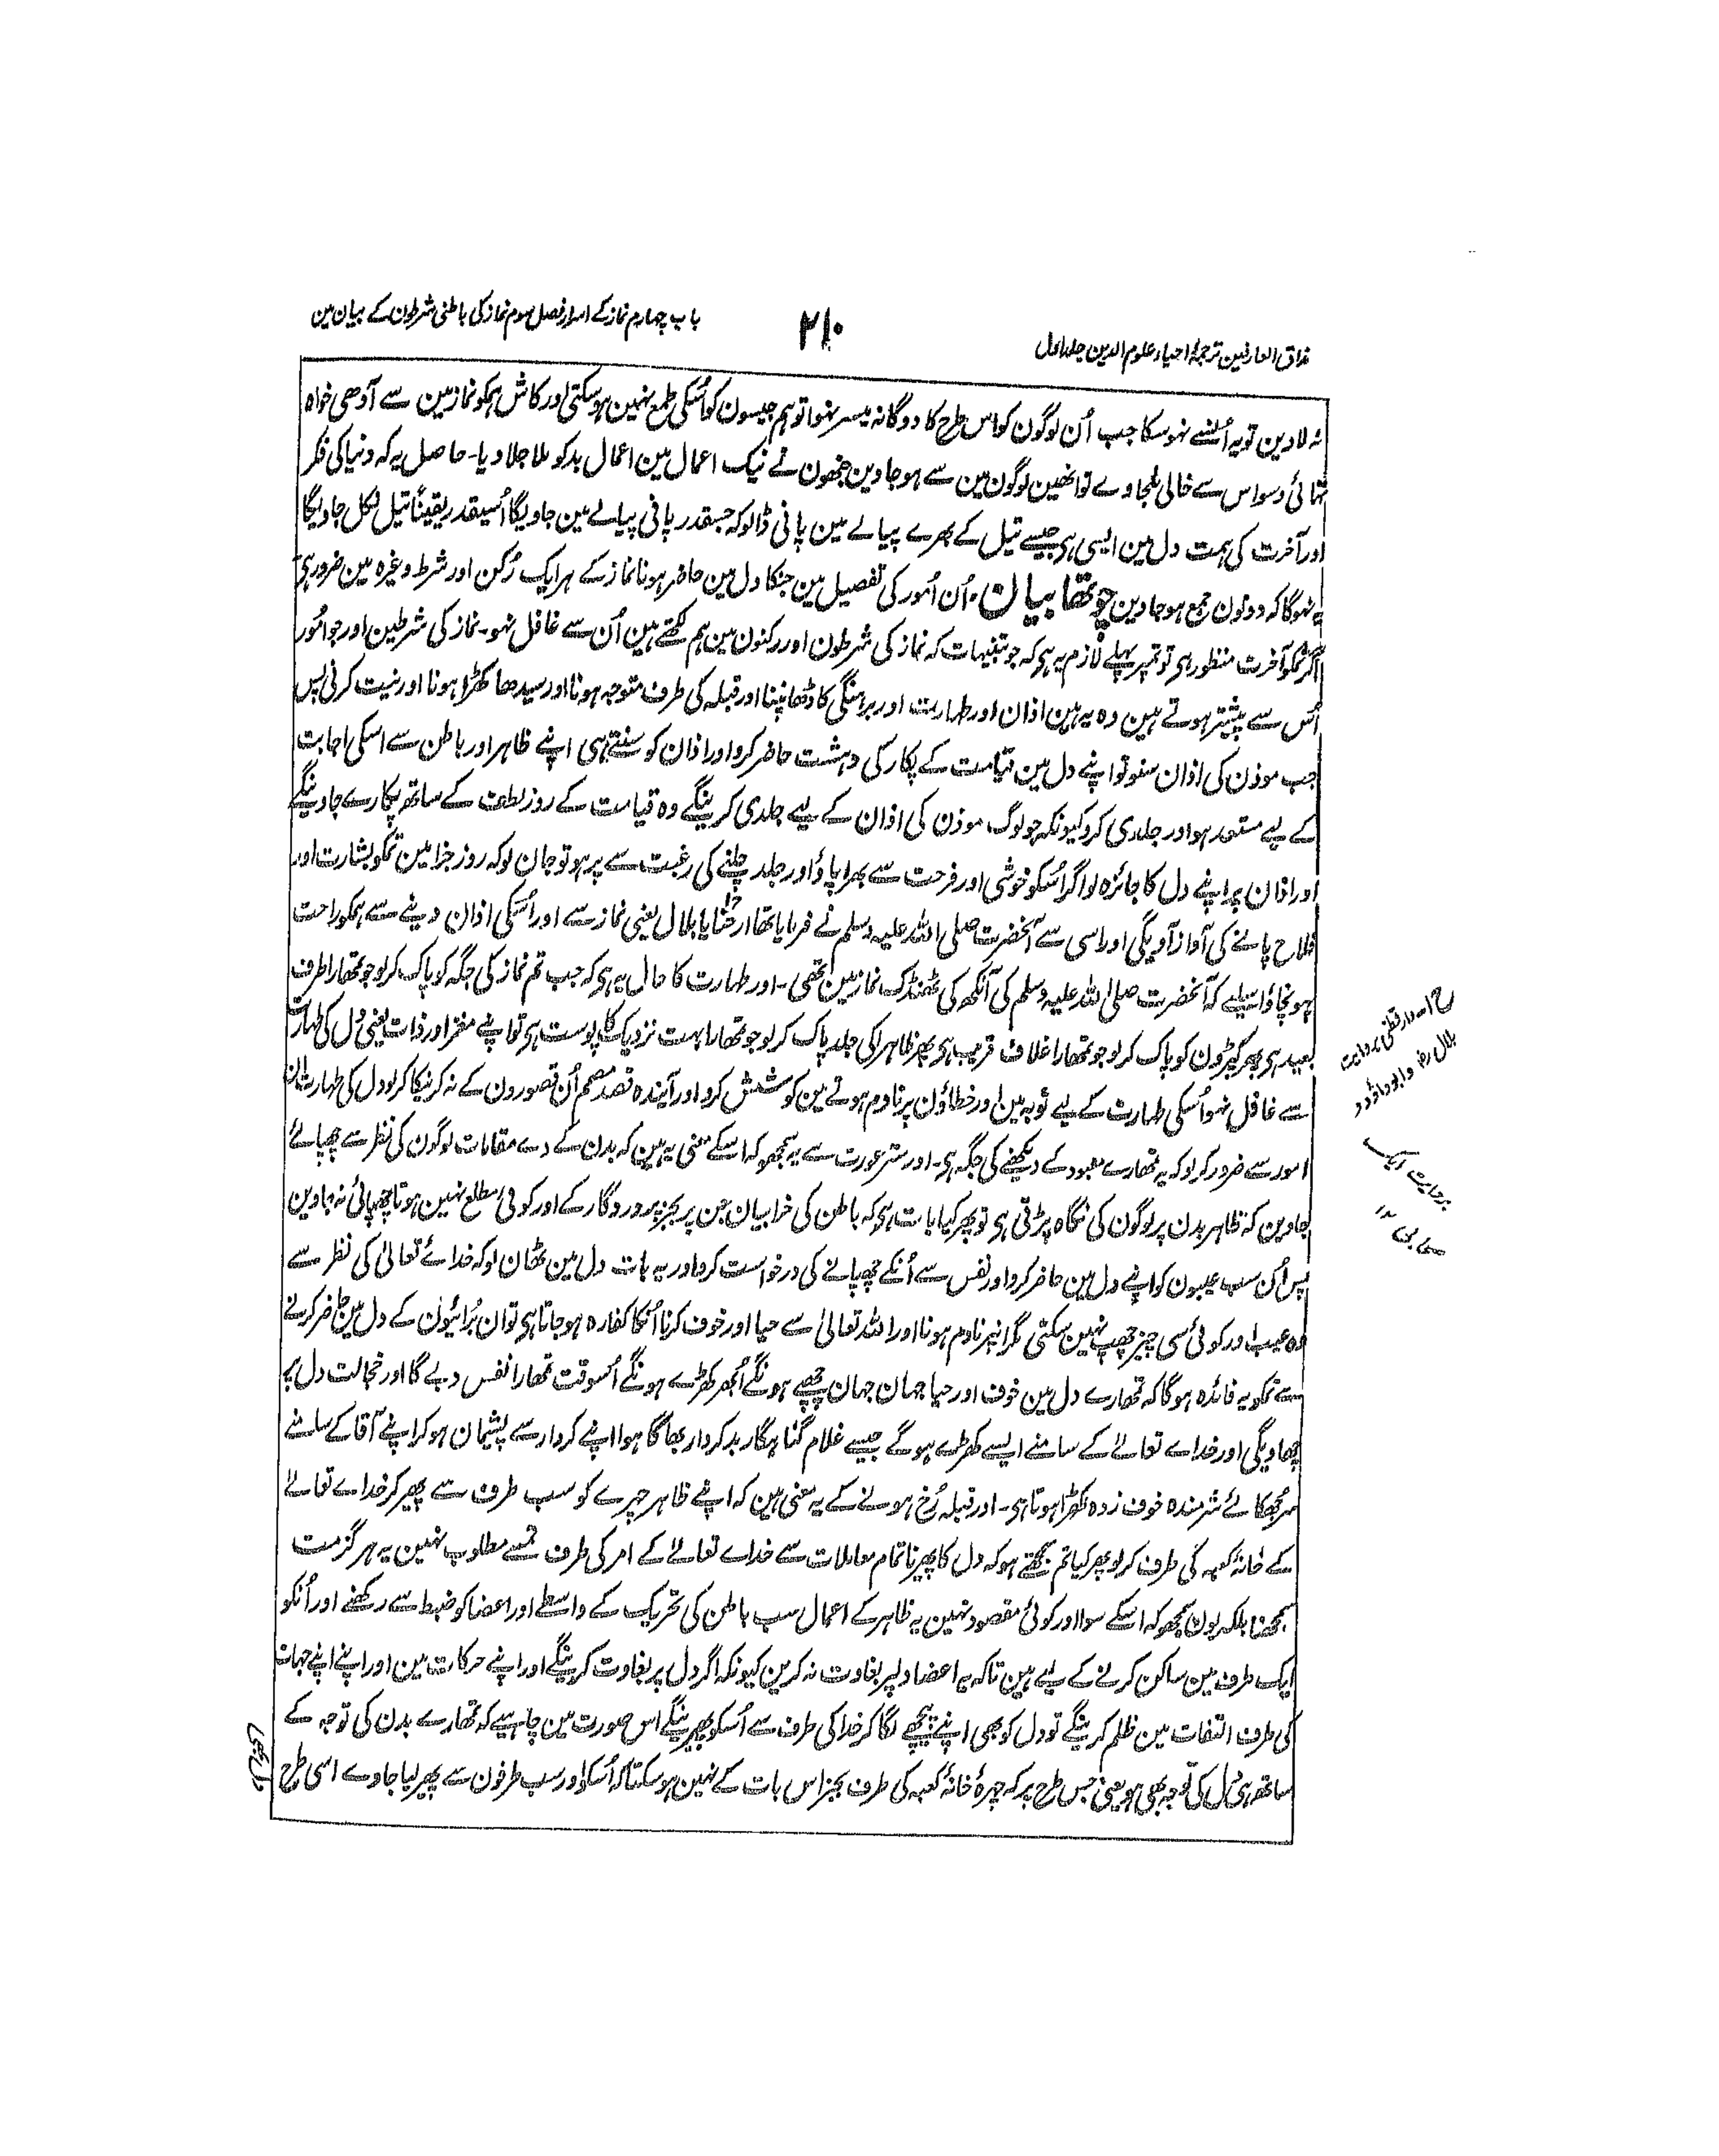 مذاق العارفین ترجمۂ احیاء علوم الدین جلد اول
۲۱۰
باب چہارم نماز کے اسرار فصل سوم نماز کی باطنی شرطون کے بیان مین
نہ لاوین تو یہ اُنسے نہوسکا جب اُن لوگون کو اس طرح کا دوگانہ میسر نہوا تو ہم جیسون کو اُسکی طمع نہین ہوسکتی اور کاش ہمکو نماز مین سے آدھی خواہ
تہائی وسواس سے خالی ملجاوے تو انھین لوگون مین سے ہوجاوین جنھون نے نیک اعمال مین اعمال بد کو ملا جلا دیا۔ حاصل یہ کہ دنیا کی فکر
اور آخرت کی ہمت دل مین ایسی ہی جیسے تیل کے بھرے پیالے مین پانی ڈالو کہ جسقدر پانی پیالے مین جاویگا اُسیقدر یقیناً تیل نکل جاویگا
یہ نہوگا کہ دونون جمع ہوجاوین چوتھا بیان۔ اُن اُمور کی تفصیل مین جنکا دل مین حاضر ہونا نماز کے ہر ایک رُکن اور شرط وغیرہ مین ضرور ہی
اگر تمکو آخرت منظور ہی تو تمپر پہلے لازم یہ ہی کہ جو تنبیہات کہ نماز کی شرطون اور رکنون مین ہم لکھتے ہین اُن سے غافل نہو۔ نماز کی شرطین اور جو امور
اُس سے پیشتر ہوتے ہین وہ یہ ہین اذان اور طہارت اور برہنگی کا ڈھانپنا اور قبلہ کی طرف متوجہ ہونا اور سیدھا کھڑا ہونا اور نیت کرنی پس
جب موذن کی اذان سنو تو اپنے دل مین قیامت کے پکار کی دہشت حاضر کرو اور اذان کو سنتے ہی اپنے ظاہر اور باطن سے اسکی اجابت
کے لیے مستعد ہو اور جلدی کرو کیونکہ جو لوگ موذن کی اذان کے لیے جلدی کرینگے وہ قیامت کے روز لطف کے ساتھ پکارے جاوینگے
اور اذان پر اپنے دل کا جائزہ لو اگر اُسکو خوشی اور فرحت سے بھرا پاؤ اور جلد چلنے کی رغبت سے پر ہو تو جان لو کہ روز جزا مین تمکو بشارت اور
فلاح پانے کی آواز آویگی اور اسی سے آنحضرت صلی اللہ علیہ وسلم نے فرمایا تھا ارحنا یا بلال یعنی نماز سے اور اُسکی اذان دینے سے ہمکو راحت
پہونچاؤ اسلیے کہ آنحضرت صلی اللہ علیہ وسلم کی آنکھ کی ٹھنڈک نماز مین تھی۔ اور طہارت کا حال یہ ہی کہ جب تم نماز کی جگہ کو پاک کرلو جو تمھارا ظرف
بعید ہی پھر کپڑون کو پاک کرلو جو تمھارا غلاف قریب ہی پھر ظاہر کی جلد پاک کرلو جو تمھارا بہت نزدیک کا پوست ہی تو اپنے مغز اور ذات یعنی دل کی طہارت
سے غافل نہو اُسکی طہارت کے لیے توبہ مین اور خطاؤن پر نادم ہونے مین کوشش کرو اور آیندہ قصد مصمم اُن قصورون کے نہ کرنیکا کرلو دل کی طہارت ان
امور سے ضرور کرلو کہ یہ تمھارے معبود کے دیکھنے کی جگہ ہی۔ اور ستر عورت سے یہ سمجھو کہ اسکے معنی یہ ہین کہ بدن کے وے مقامات لوگون کی نظر سے چھپائے
جاوین کہ ظاہر بدن پر لوگون کی نگاہ پڑتی ہی تو پھر کیا بات ہی کہ باطن کی خرابیان جن پر بجز پروردگار کے اور کوئی مطلع نہین ہوتا چھپائی نہ جاوین
پس اُن سب عیبون کو اپنے دل مین حاضر کرو اور نفس سے اُنکے چھپانے کی درخواست کرو اور یہ بات دل مین ٹھان لو کہ خدائے تعالیٰ کی نظر سے
وہ عیب اور کوئی سی چیز چھپ نہین سکتی مگر انپر نادم ہونا اور اللہ تعالیٰ سے حیا اور خوف کرنا اُنکا کفارہ ہوجاتا ہی تو ان بُرائیون کے دل مین حاضر کرنے
سے تمکو یہ فائدہ ہوگا کہ تمھارے دل مین خوف اور حیا جہان جہان چھپے ہونگے اُبھر کھڑے ہونگے اُسوقت تمھارا نفس دبے گا اور خجالت دل پر
چھاویگی اور خداے تعالےٰ کے سامنے ایسے کھڑے ہوگے جیسے غلام گناہگار بد کردار بھاگا ہوا اپنے کردار سے پشیمان ہوکر اپنے آقا کے سامنے
سر جھکائے شرمندہ خوف زدہ کھڑا ہوتا ہی۔ اور قبلہ رُخ ہونے کے یہ معنی ہین کہ اپنے ظاہر چہرے کو سب طرف سے پھیر کر خداے تعالےٰ
کے خانۂ کعبہ کی طرف کرلو پھر کیا تم سمجھتے ہو کہ دل کا پھیرنا تمام معاملات سے خداے تعالےٰ کے امر کی طرف تمسے مطلوب نہین یہ ہرگز مت
سمجھنا بلکہ یون سمجھو کہ اسکے سوا اور کوئی مقصود نہین یہ ظاہر کے اعمال سب باطن کی تحریک کے واسطے اور اعضا کو ضبط سے رکھنے اور اُنکو
ایک طرف مین ساکن کرنے کے لیے ہین تاکہ یہ اعضا دلپر بغاوت نہ کرین کیونکہ اگر دل پر بغاوت کرینگے اور اپنے حرکات مین اور اپنے اپنے جہات
کی طرف التفات مین ظلم کرینگے تو دل کو بھی اپنے پیچھے لگا کر خدا کی طرف سے اُسکو پھیرینگے اس صورت مین چاہیے کہ تمھارے بدن کی توجہ کے
ساتھ ہی دل کی توجہ بھی ہو یعنی جس طرح پر کہ چہرہ خانۂ کعبہ کی طرف بجز اس بات کے نہین ہوسکتا کہ اُسکو اور سب طرفون سے پھیر لیا جاوے اسی طرح
دارقطنی بروایت
بلال رض و ابوداؤد
بروایت ایک
صحابی ۱۲